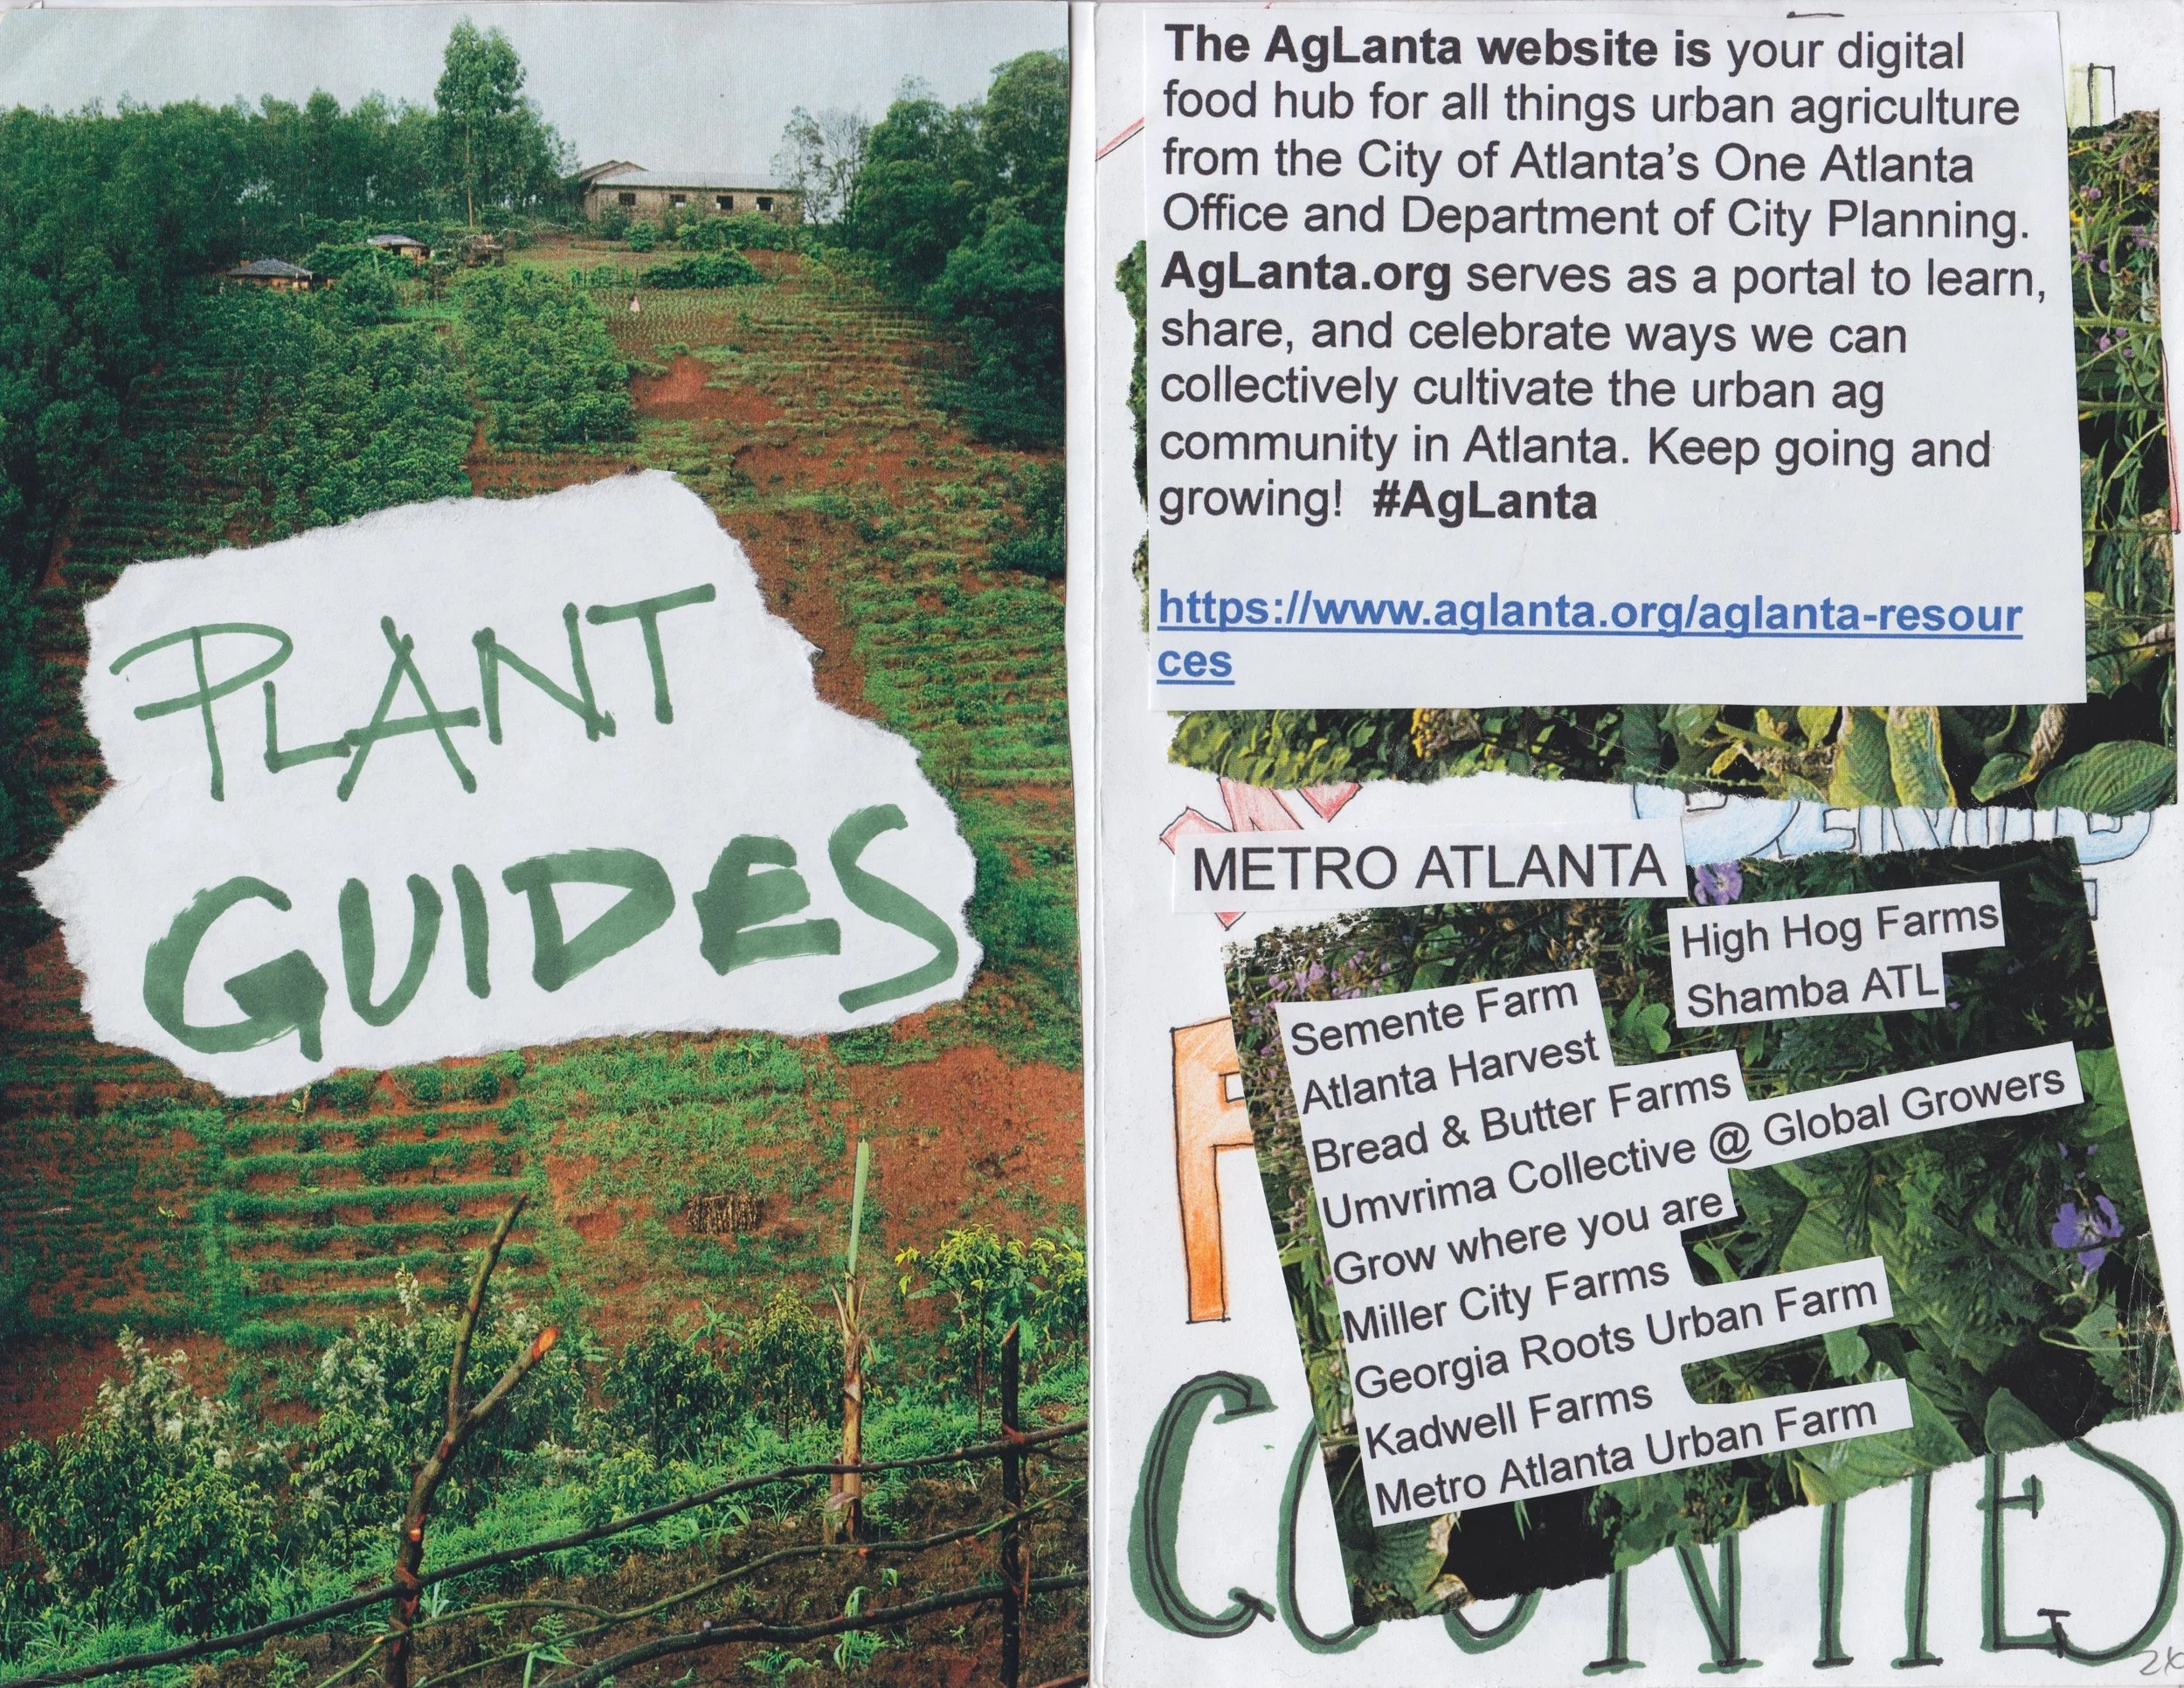 PLANT
GUIDES
The AgLanta website is your digital
food hub for all things urban agriculture
from the City of Atlanta's One Atlanta
Office and Department of City Planning.
AgLanta.org serves as a portal to learn,
share, and celebrate ways we can
collectively cultivate the urban ag
community in Atlanta. Keep going and
growing! #AgLanta
https://www.aglanta.org/aglanta-resour
ces
METRO ATLANTA
High Hog Farms
Shamba ATL
Semente Farm
Atlanta Harvest
Bread & Butter Farms
Umvrima Collective @ Global Growers
Grow where you are
Miller City Farms
Georgia Roots Urban Farm
Kadwell Farms
Metro Atlanta Urban Farm